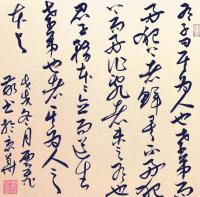 有子曰其為人也孝弟而
好犯上者鮮矣不好犯
上而好作亂者未之有也
君子務本本立而道生
孝弟也者其為人之
本與
冬月
書於京華